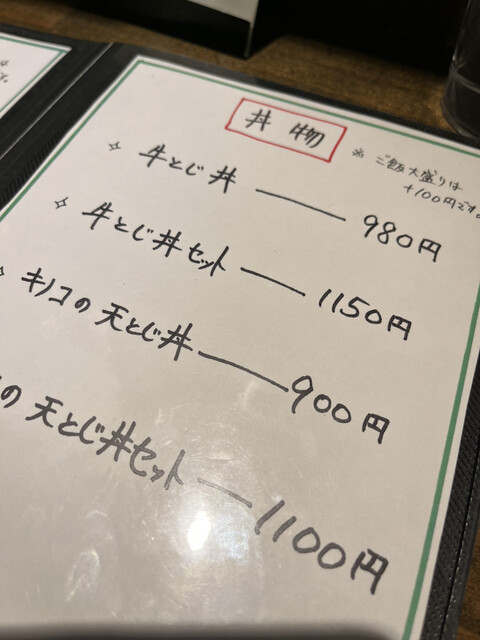 丼物
※ ご飯大盛りは
+100円です。
牛とじ丼 980円
牛とじ丼セット 1150円
キノコの天とじ丼 900円
の天とじ丼セット 1100円